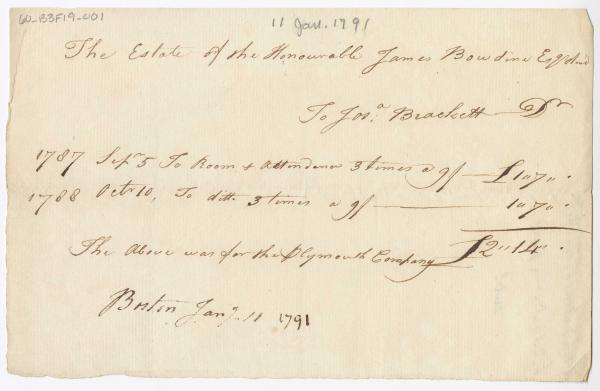 60-B3F19-001
11 Jan. 1791
The Estate of the Honourable James Bowdine Esqr
To Josa. Brackett Dr
1787 Sepr 5 To Room & Attendence 3 times a 9/ £1"7".
1788 Octr 10, To ditt. 3 times a 9/ 1"7".
The Above was for the Plymouth Company £2"14".
Boston Jany. 11 1791